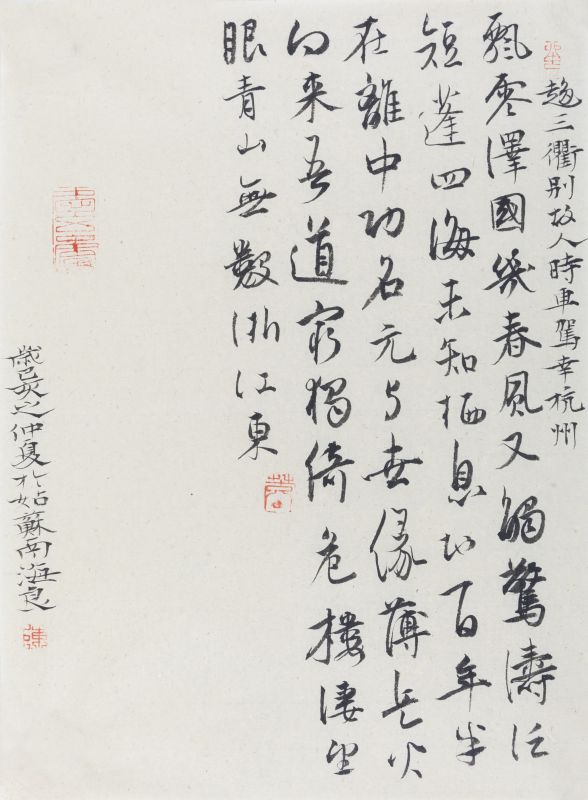 趍三衢别故人時車駕幸杭州
飄零澤國幾春風又觸驚濤泛
短蓬四海未知栖息地百年半
在離中功名元与世緣薄兵火
向来吾道窮獨倚危樓凄望
眼青山無數浙江東
歲己亥之仲夏於姑蘇南海良